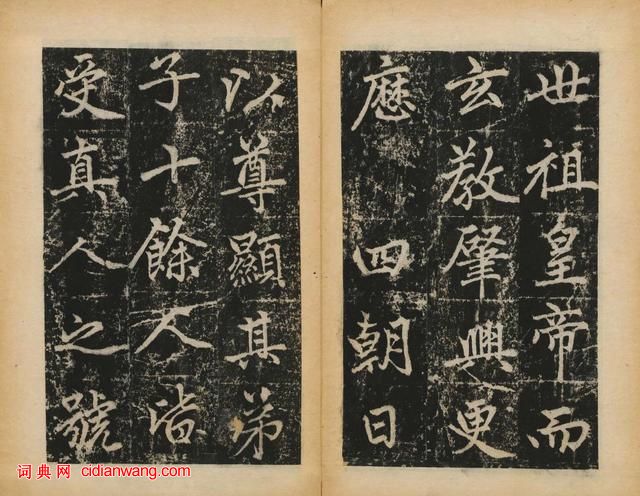 世祖皇帝而
玄教肇興更
歷四朝日
以尊顯其弟
子十餘人皆
受真人之號
词典网 cidianwang.com